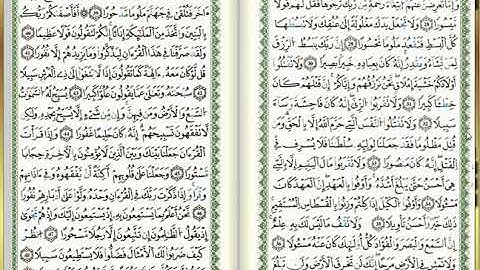 وَإِمَّا تُعْرِضَنَّ عَنْهُمُ ابْتِغَاءَ رَحْمَةٍ مِّن رَّبِّكَ تَرْجُوهَا فَقُل لَّهُمْ قَوْلًا
مَّيْسُورًا ٢٨ وَلَا تَجْعَلْ يَدَكَ مَغْلُولَةً إِلَىٰ عُنُقِكَ وَلَا تَبْسُطْهَا
كُلَّ الْبَسْطِ فَتَقْعُدَ مَلُومًا مَّحْسُورًا ٢٩ إِنَّ رَبَّكَ يَبْسُطُ الرِّزْقَ
لِمَن يَشَاءُ وَيَقْدِرُ إِنَّهُ كَانَ بِعِبَادِهِ خَبِيرًا بَصِيرًا ٣٠ وَلَا تَقْتُلُوا
أَوْلَٰدَكُمْ خَشْيَةَ إِمْلَٰقٍ نَّحْنُ نَرْزُقُهُمْ وَإِيَّاكُمْ إِنَّ قَتْلَهُمْ كَانَ
خِطْئًا كَبِيرًا ٣١ وَلَا تَقْرَبُوا الزِّنَىٰ إِنَّهُ كَانَ فَٰحِشَةً وَسَاءَ
سَبِيلًا ٣٢ وَلَا تَقْتُلُوا النَّفْسَ الَّتِي حَرَّمَ اللَّهُ إِلَّا بِالْحَقِّ وَمَن
قُتِلَ مَظْلُومًا فَقَدْ جَعَلْنَا لِوَلِيِّهِ سُلْطَٰنًا فَلَا يُسْرِف فِّي
الْقَتْلِ إِنَّهُ كَانَ مَنصُورًا ٣٣ وَلَا تَقْرَبُوا مَالَ الْيَتِيمِ إِلَّا بِالَّتِي
هِيَ أَحْسَنُ حَتَّىٰ يَبْلُغَ أَشُدَّهُ وَأَوْفُوا بِالْعَهْدِ إِنَّ الْعَهْدَ كَانَ
مَسْئُولًا ٣٤ وَأَوْفُوا الْكَيْلَ إِذَا كِلْتُمْ وَزِنُوا بِالْقِسْطَاسِ الْمُسْتَقِيمِ
ذَٰلِكَ خَيْرٌ وَأَحْسَنُ تَأْوِيلًا ٣٥ وَلَا تَقْفُ مَا لَيْسَ لَكَ بِهِ عِلْمٌ
إِنَّ السَّمْعَ وَالْبَصَرَ وَالْفُؤَادَ كُلُّ أُولَٰئِكَ كَانَ عَنْهُ مَسْئُولًا
٣٦ وَلَا تَمْشِ فِي الْأَرْضِ مَرَحًا إِنَّكَ لَن تَخْرِقَ الْأَرْضَ وَلَن تَبْلُغَ
ءَاخَرَ فَتُلْقَىٰ فِي جَهَنَّمَ مَلُومًا مَّدْحُورًا ٣٩ أَفَأَصْفَىٰكُمْ رَبُّكُم
بِالْبَنِينَ وَاتَّخَذَ مِنَ الْمَلَٰئِكَةِ إِنَٰثًا إِنَّكُمْ لَتَقُولُونَ قَوْلًا عَظِيمًا
٤٠ وَلَقَدْ صَرَّفْنَا فِي هَٰذَا الْقُرْءَانِ لِيَذَّكَّرُوا وَمَا يَزِيدُهُمْ إِلَّا نُفُورًا ٤١
قُل لَّوْ كَانَ مَعَهُ ءَالِهَةٌ كَمَا يَقُولُونَ إِذًا لَّابْتَغَوْا إِلَىٰ ذِي الْعَرْشِ سَبِيلًا
٤٢ سُبْحَٰنَهُ وَتَعَٰلَىٰ عَمَّا يَقُولُونَ عُلُوًّا كَبِيرًا ٤٣ تُسَبِّحُ لَهُ السَّمَٰوَٰتُ
السَّبْعُ وَالْأَرْضُ وَمَن فِيهِنَّ وَإِن مِّن شَيْءٍ إِلَّا يُسَبِّحُ بِحَمْدِهِ وَلَٰكِن
لَّا تَفْقَهُونَ تَسْبِيحَهُمْ إِنَّهُ كَانَ حَلِيمًا غَفُورًا ٤٤ وَإِذَا قَرَأْتَ
الْقُرْءَانَ جَعَلْنَا بَيْنَكَ وَبَيْنَ الَّذِينَ لَا يُؤْمِنُونَ بِالْءَاخِرَةِ حِجَابًا
مَّسْتُورًا ٤٥ وَجَعَلْنَا عَلَىٰ قُلُوبِهِمْ أَكِنَّةً أَن يَفْقَهُوهُ وَفِي ءَاذَانِهِمْ
وَقْرًا وَإِذَا ذَكَرْتَ رَبَّكَ فِي الْقُرْءَانِ وَحْدَهُ وَلَّوْا عَلَىٰ أَدْبَٰرِهِمْ نُفُورًا
٤٦ نَّحْنُ أَعْلَمُ بِمَا يَسْتَمِعُونَ بِهِ إِذْ يَسْتَمِعُونَ إِلَيْكَ وَإِذْ هُمْ نَجْوَىٰ
إِذْ يَقُولُ الظَّٰلِمُونَ إِن تَتَّبِعُونَ إِلَّا رَجُلًا مَّسْحُورًا ٤٧ انظُرْ
كَيْفَ ضَرَبُوا لَكَ الْأَمْثَالَ فَضَلُّوا فَلَا يَسْتَطِيعُونَ سَبِيلًا ٤٨